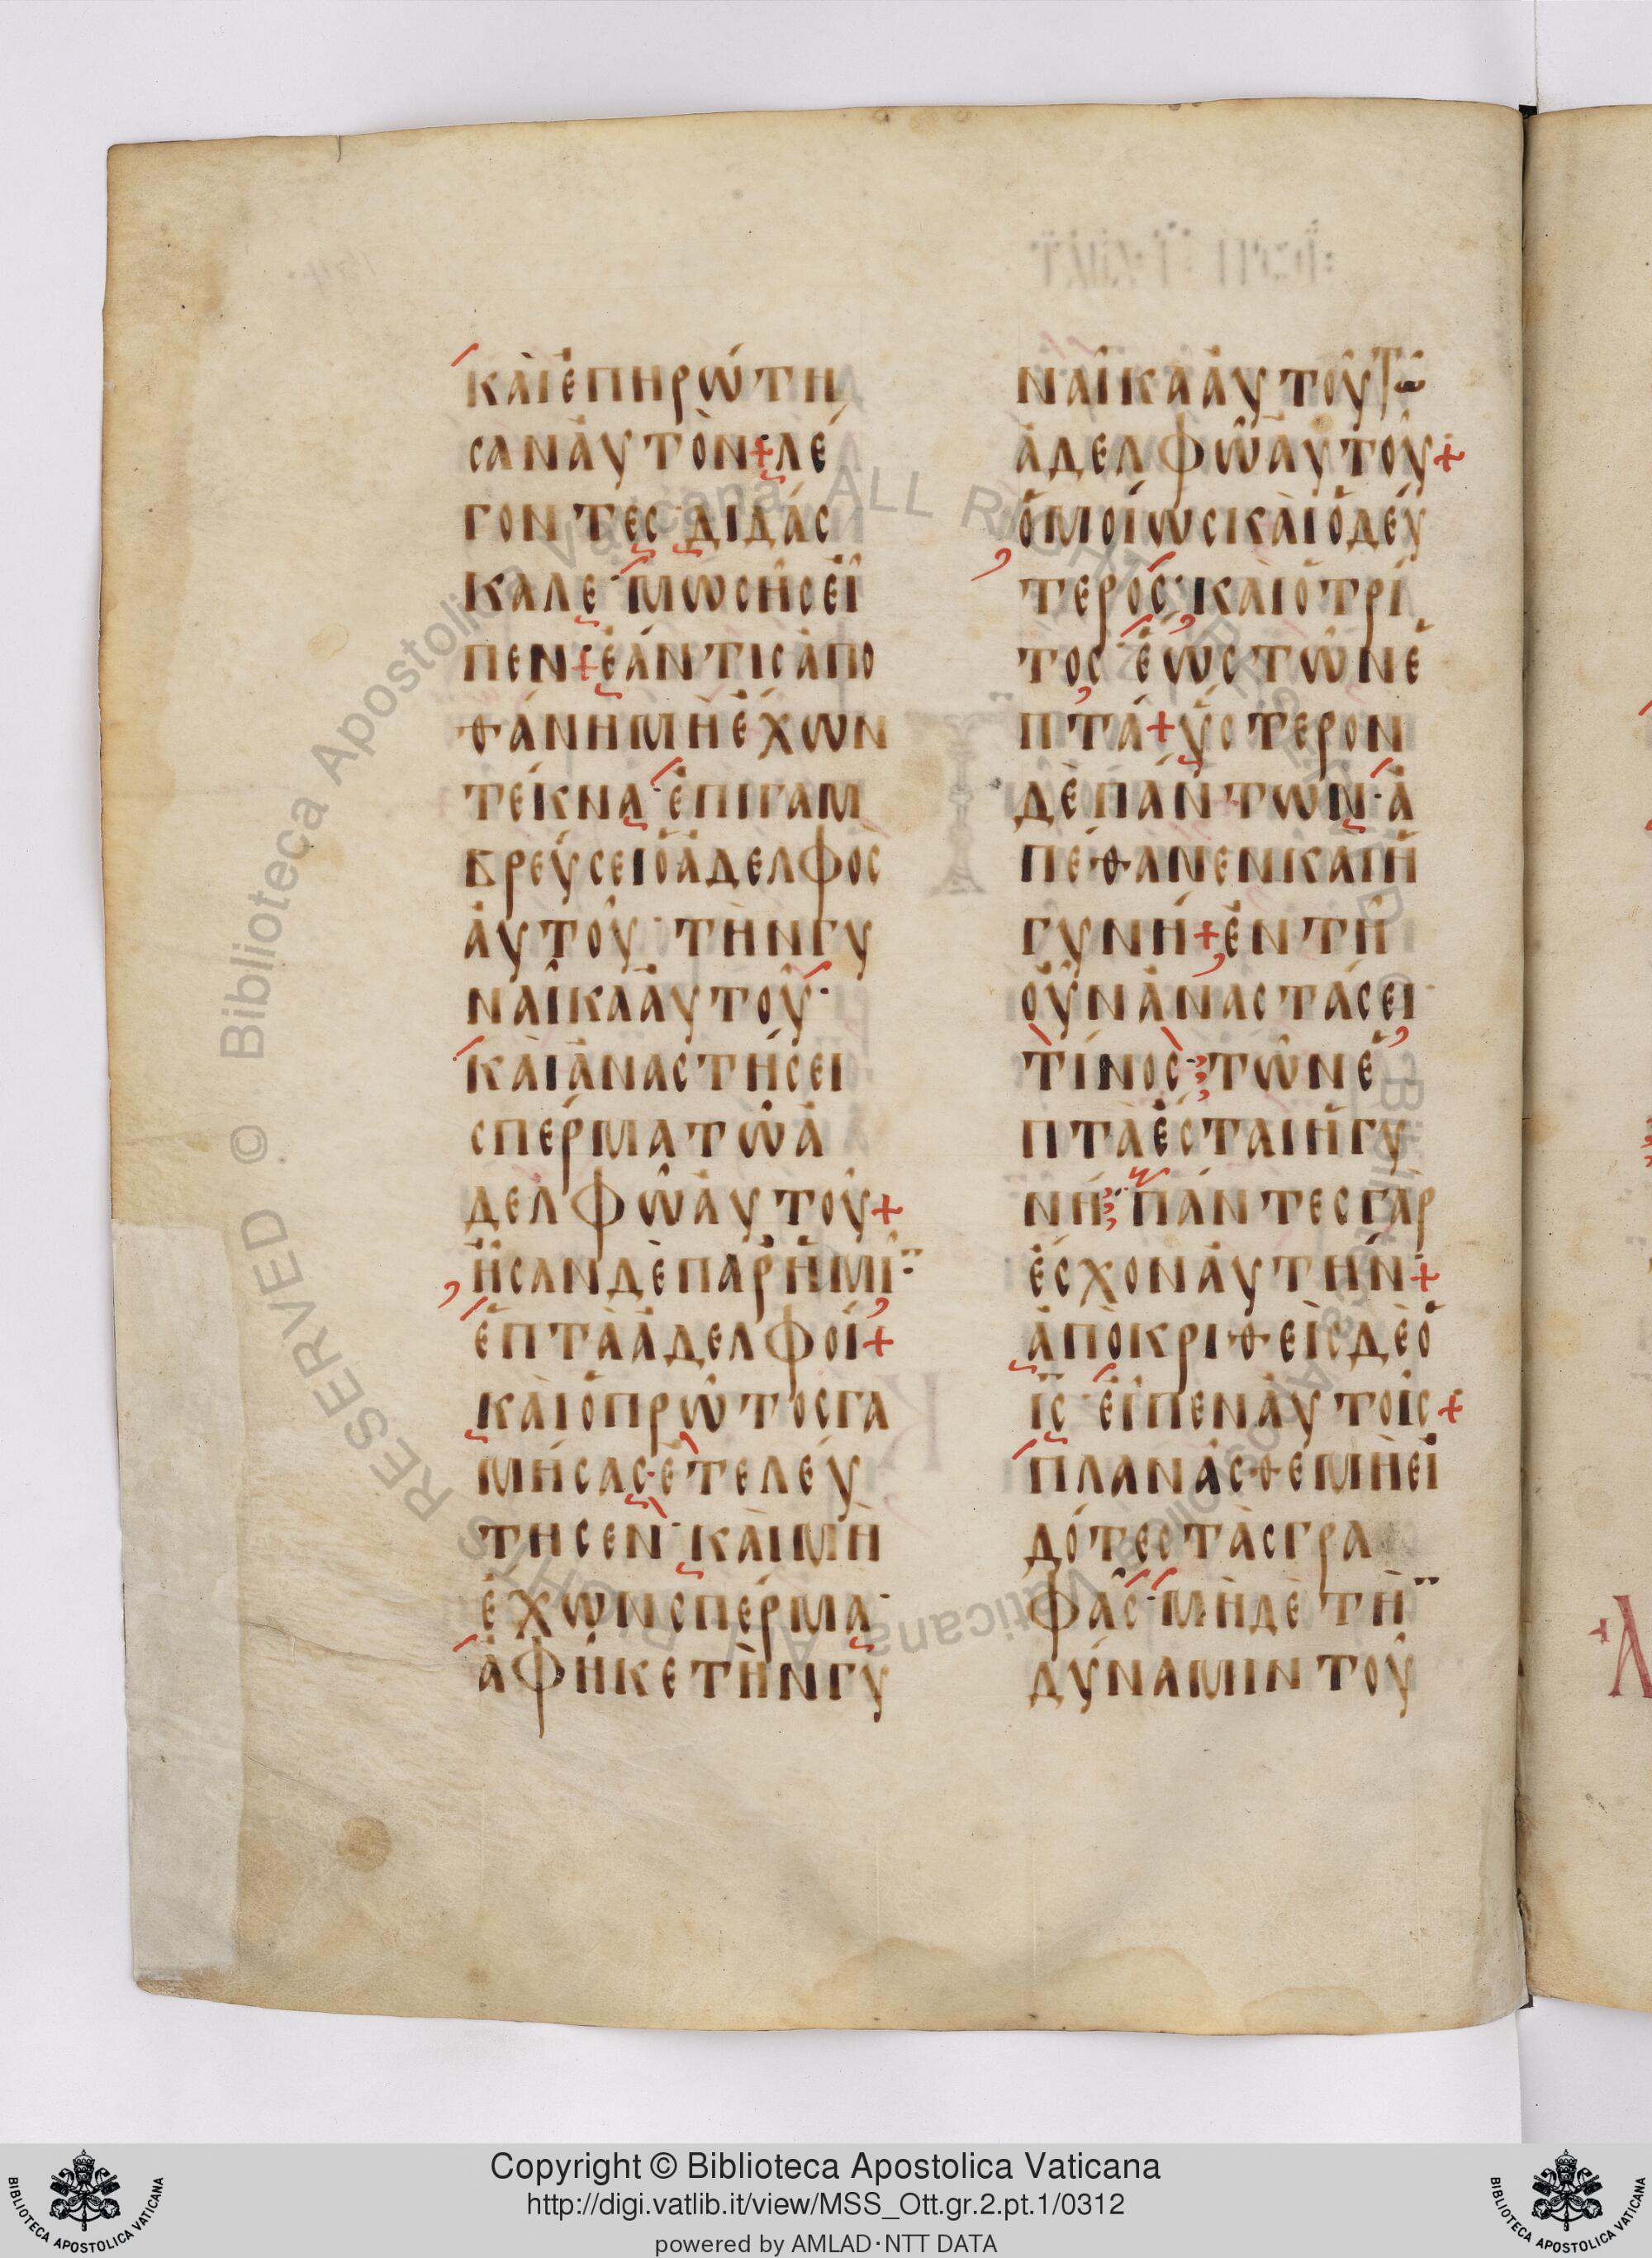 ΚΑῚἘΠΗΡΏΤΗ
ΣΑΝἈΥΤῸΝ+ΛΈ
ΓΟΝΤΕΣ·ΔΙΔΆΣ
ΚΑΛΕ·ΜΩΣΗ͂ΣΕἾ
ΠΕΝ+ἘΆΝΤΙΣἈΠΟ
ΘΆΝΗΜῊἜΧΩΝ
ΤΈΚΝΑ·ἘΠΙΓΑΜ
ΒΡΕΎΣΕΙὉἈΔΕΛΦΟΣ
ἈΥΤΟΥ͂·ΤῊΝΓΥ
ΝΑΙ͂ΚΑἈΥΤΟΥ͂·
ΚΑῚἈΝΑΣΤΉΣΕΙ
ΣΠΈΡΜΑΤΩ͂Ἀ
ΔΕΛΦΩ͂ἈΥΤΟΥ͂+
ἮΣΑΝΔῈΠΑΡἩΜΙ͂¨
ἙΠΤᾺἈΔΕΛΦΟΊ+
ΚΑῚὉΠΡΩ͂ΤΟΣΓΑ
ΜΉΣΑΣ·ἘΤΕΛΕΎ
ΤΗΣΕΝ·ΚΑῚΜῊ
ἜΧΩΝΣΠΈΡΜΑ·
ἈΦΗ͂ΚΕΤῊΝΓΥ
ΝΑΙ͂ΚΑἈΥΤΟΥ͂Τ͂Ω
ἈΔΕΛΦΩ͂ἈΥΤΟΥ͂+
ὉΜΟΊΩΣΚΑῚὉΔΕΎ
ΤΕΡΟΣ·ΚΑῚὉΤΡΊ
ΤΟΣ·ἝΩΣΤΩ͂ΝἘ
ΠΤᾺ+ὝΣΤΕΡΟΝ
ΔῈΠΆΝΤΩΝ·Ἀ
ΠΈΘΑΝΕΝΚΑῚἩ
ΓΥΝΉ+ἘΝΤΗ͂
ΟΥ̓͂ΝἈΝΑΣΤΆΣΕΙ·
ΤΊΝΟΣ·ΤΩ͂ΝἙ
ΠΤᾺἜΣΤΑΙἩΓΥ
ΝΉ·ΠΆΝΤΕΣΓᾺΡ
ἜΣΧΟΝἈΥΤΉΝ+
ἈΠΟΚΡΙΘΕῚΣΔῈὉ
ΙΣ·ΕἾΠΕΝἈΥΤΟΙ͂Σ+
ΠΛΑΝΑ͂ΣΘΕΜῊΕἸ
ΔΌΤΕΣΤᾺΣΓΡΑ
ΦΆΣ·ΜΗΔῈΤῊ¨
ΔΎΝΑΜΙΝΤΟΥ͂
© Biblioteca Apostolica Vaticana ALL RIGHTS RESERVED
Copyright © Biblioteca Apostolica Vaticana
http://digi.vatlib.it/view/MSS_Ott.gr.2.pt.1/0312
powered by AMLAD·NTT DATA
BIBLIOTECA APOSTOLICA VATICANA
BIBLIOTECA APOSTOLICA VATICANA